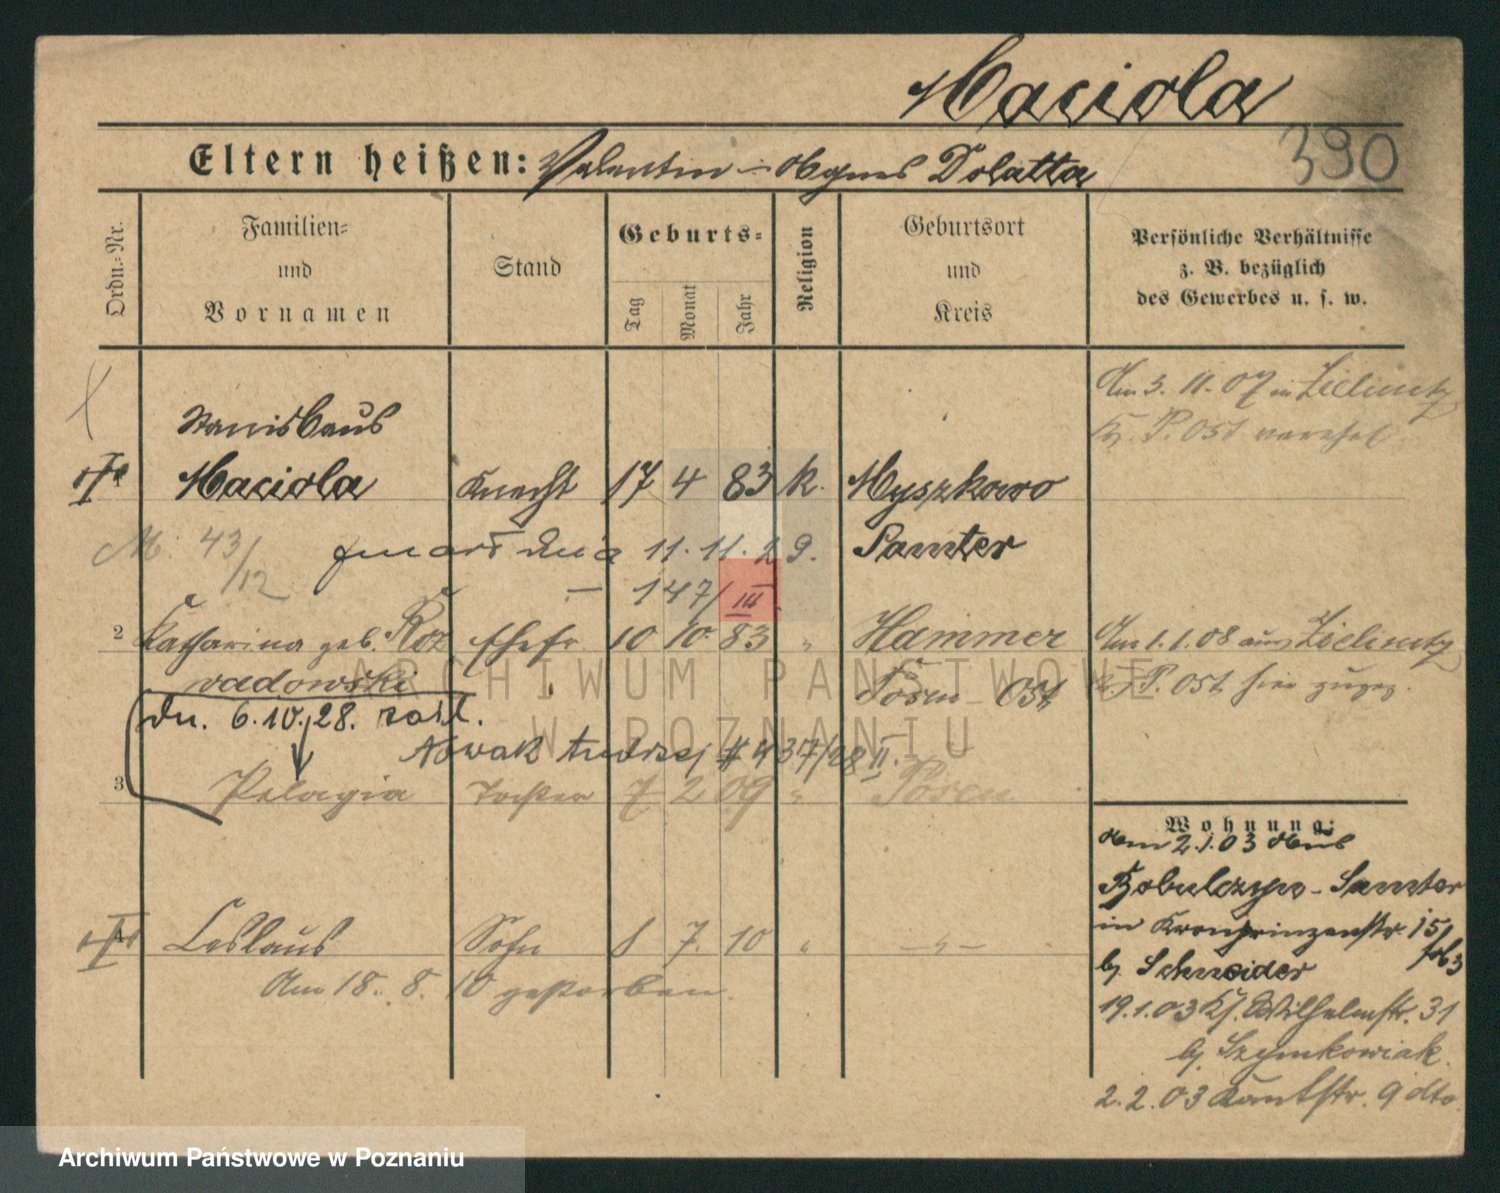 Maciola
390
Eltern heißen: Valentin – Agnes Dolatta
Ordn.-Nr.
Familien- und Vornamen
Stand
Geburts-
Tag Monat Jahr
Religion
Geburtsort und Kreis
Persönliche Verhältnisse z. B. bezüglich des Gewerbes u. s. w.
Am 3. 11. 07 in Zielinetz
Kr. P. Ost verehel.
Stanislaus
Maciola Knecht 17 4 83 k. Myszkowo
Samter
M. 43/12
zmarł dnia 11. 11. 29.
– 147/III.
2 Katharina geb. Roz Ehefr. 10 10. 83 " Hammer
wadowski Posen Ost
Am 1. 1. 08 aus Zielinetz
Kr. P. Ost hier zugez.
Dn. 6. 10. 28. zasl.
Nowak Andrzej # 437/28 II.
3 Pelagia Tochter 7 2 09 " Posen
Leslaus Sohn 8 7. 10 " – " –
Am 18. 8. 10 gestorben.
Wohnung:
Am 2.1.03 Aus
Bobulczyn - Samter
in Kronprinzenstr 15
b/ Schneider
19.1.03 Kl. Wilhelmstr. 31
b/ Szymkowiak
2. 2. 03 Kantstr. 9 dto
ARCHIWUM PAŃSTWOWE
W POZNANIU
Archiwum Państwowe w Poznaniu